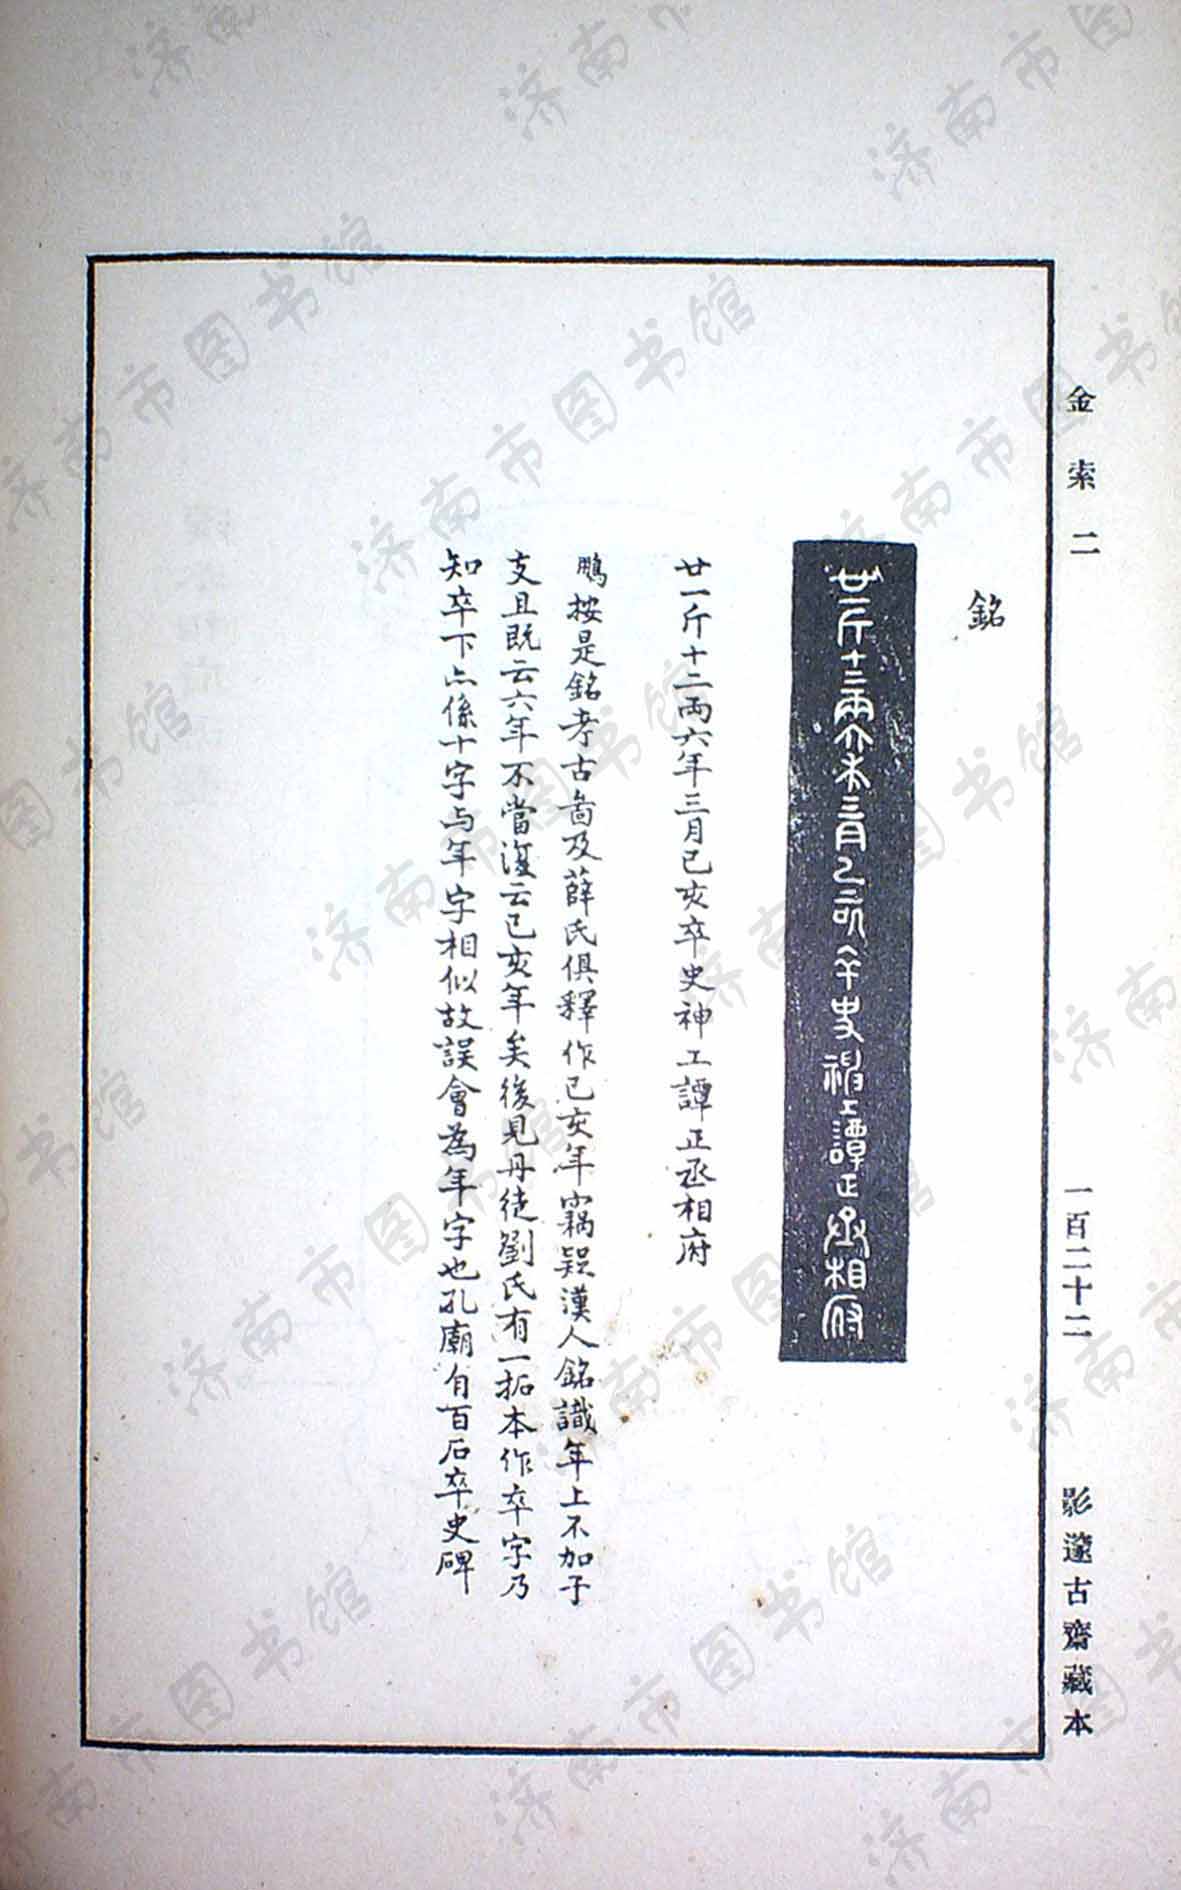 金索二
一百二十二
影邃古齋藏本
銘
廿一斤十二兩六年三月己亥卒史神工譚正丞相府
廿一斤十二兩六年三月己亥卒史神工譚正丞相府
鵬按是銘考古啚及薛氏俱釋作己亥年竊疑漢人銘識年上不加干
支且既云六年不當復云己亥年矣後見丹徒劉氏有一拓本作卒字乃
知卒下亠係十字与年字相似故誤會為年字也孔廟有百石卒史碑
济南市图书馆